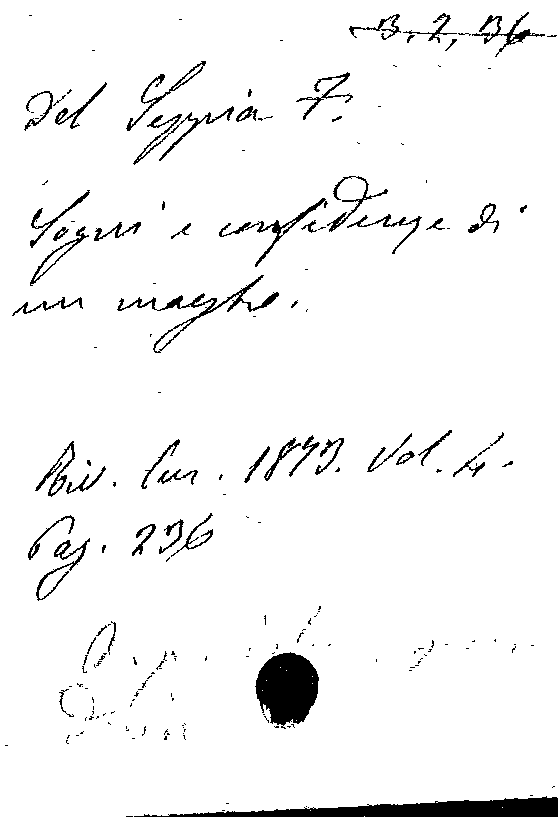 B. 2, 36
Del Seppia F.
Sogni e confidenze di
un maestro.
Riv. Eur. 1873. Vol. 4.
Pag. 236